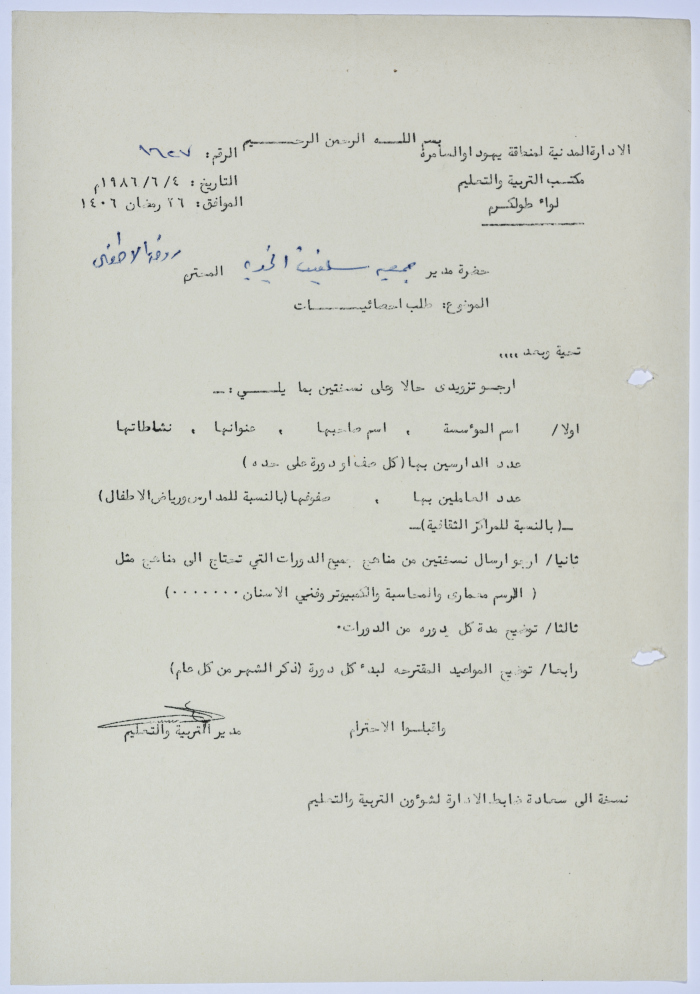 بسم اللـــه الرحمن الرحـــــيم
الادارة المدنية لمنطقة يهودا والسامرة
مكتب التربية والتعليم
لواء طولكرم
الرقم: ١٦٢٧
التاريخ: ١٩٨٦/٦/٤م
الموافق: ٢٦ رمضان ١٤٠٦
حضرة مدير جمعيه سلفيت الخيريه المحترم
روضة الاطفال
الموضوع: طلب احصائيـــــــات
تحية وبعد ,,,,
ارجـو تزويدى حالا وعلى نسختين بما يلـــي :ـ
اولا/ اسم المؤسسة , اسم صاحبها , عنوانها , نشاطاتها
عدد الدارسين بها (كل صف او دورة على حده )
عدد العاملين بها , صفوفها (بالنسبة للمدارس ورياض الاطفال)
ــ( بالنسبة للمراكز الثقافية)ــ
ثانيا/ ارجو ارسال نسختين من مناهج جميع الدورات التي تحتاج الى مناهج مثل
( الرسم معمارى والمحاسبة والكمبيوتر وفنيي الاسنان ٠٠٠٠٠٠٠)
ثالثا/ توضيح مدة كل دوره من الدورات٠
رابعا/ توضيح المواعيد المقترحه لبدء كل دورة (ذكر الشهر من كل عام)
واقبلـوا الاحترام
مدير التربية والتعليم
نسخة الى سعادة ضابط الادارة لشوءون التربية والتعليم